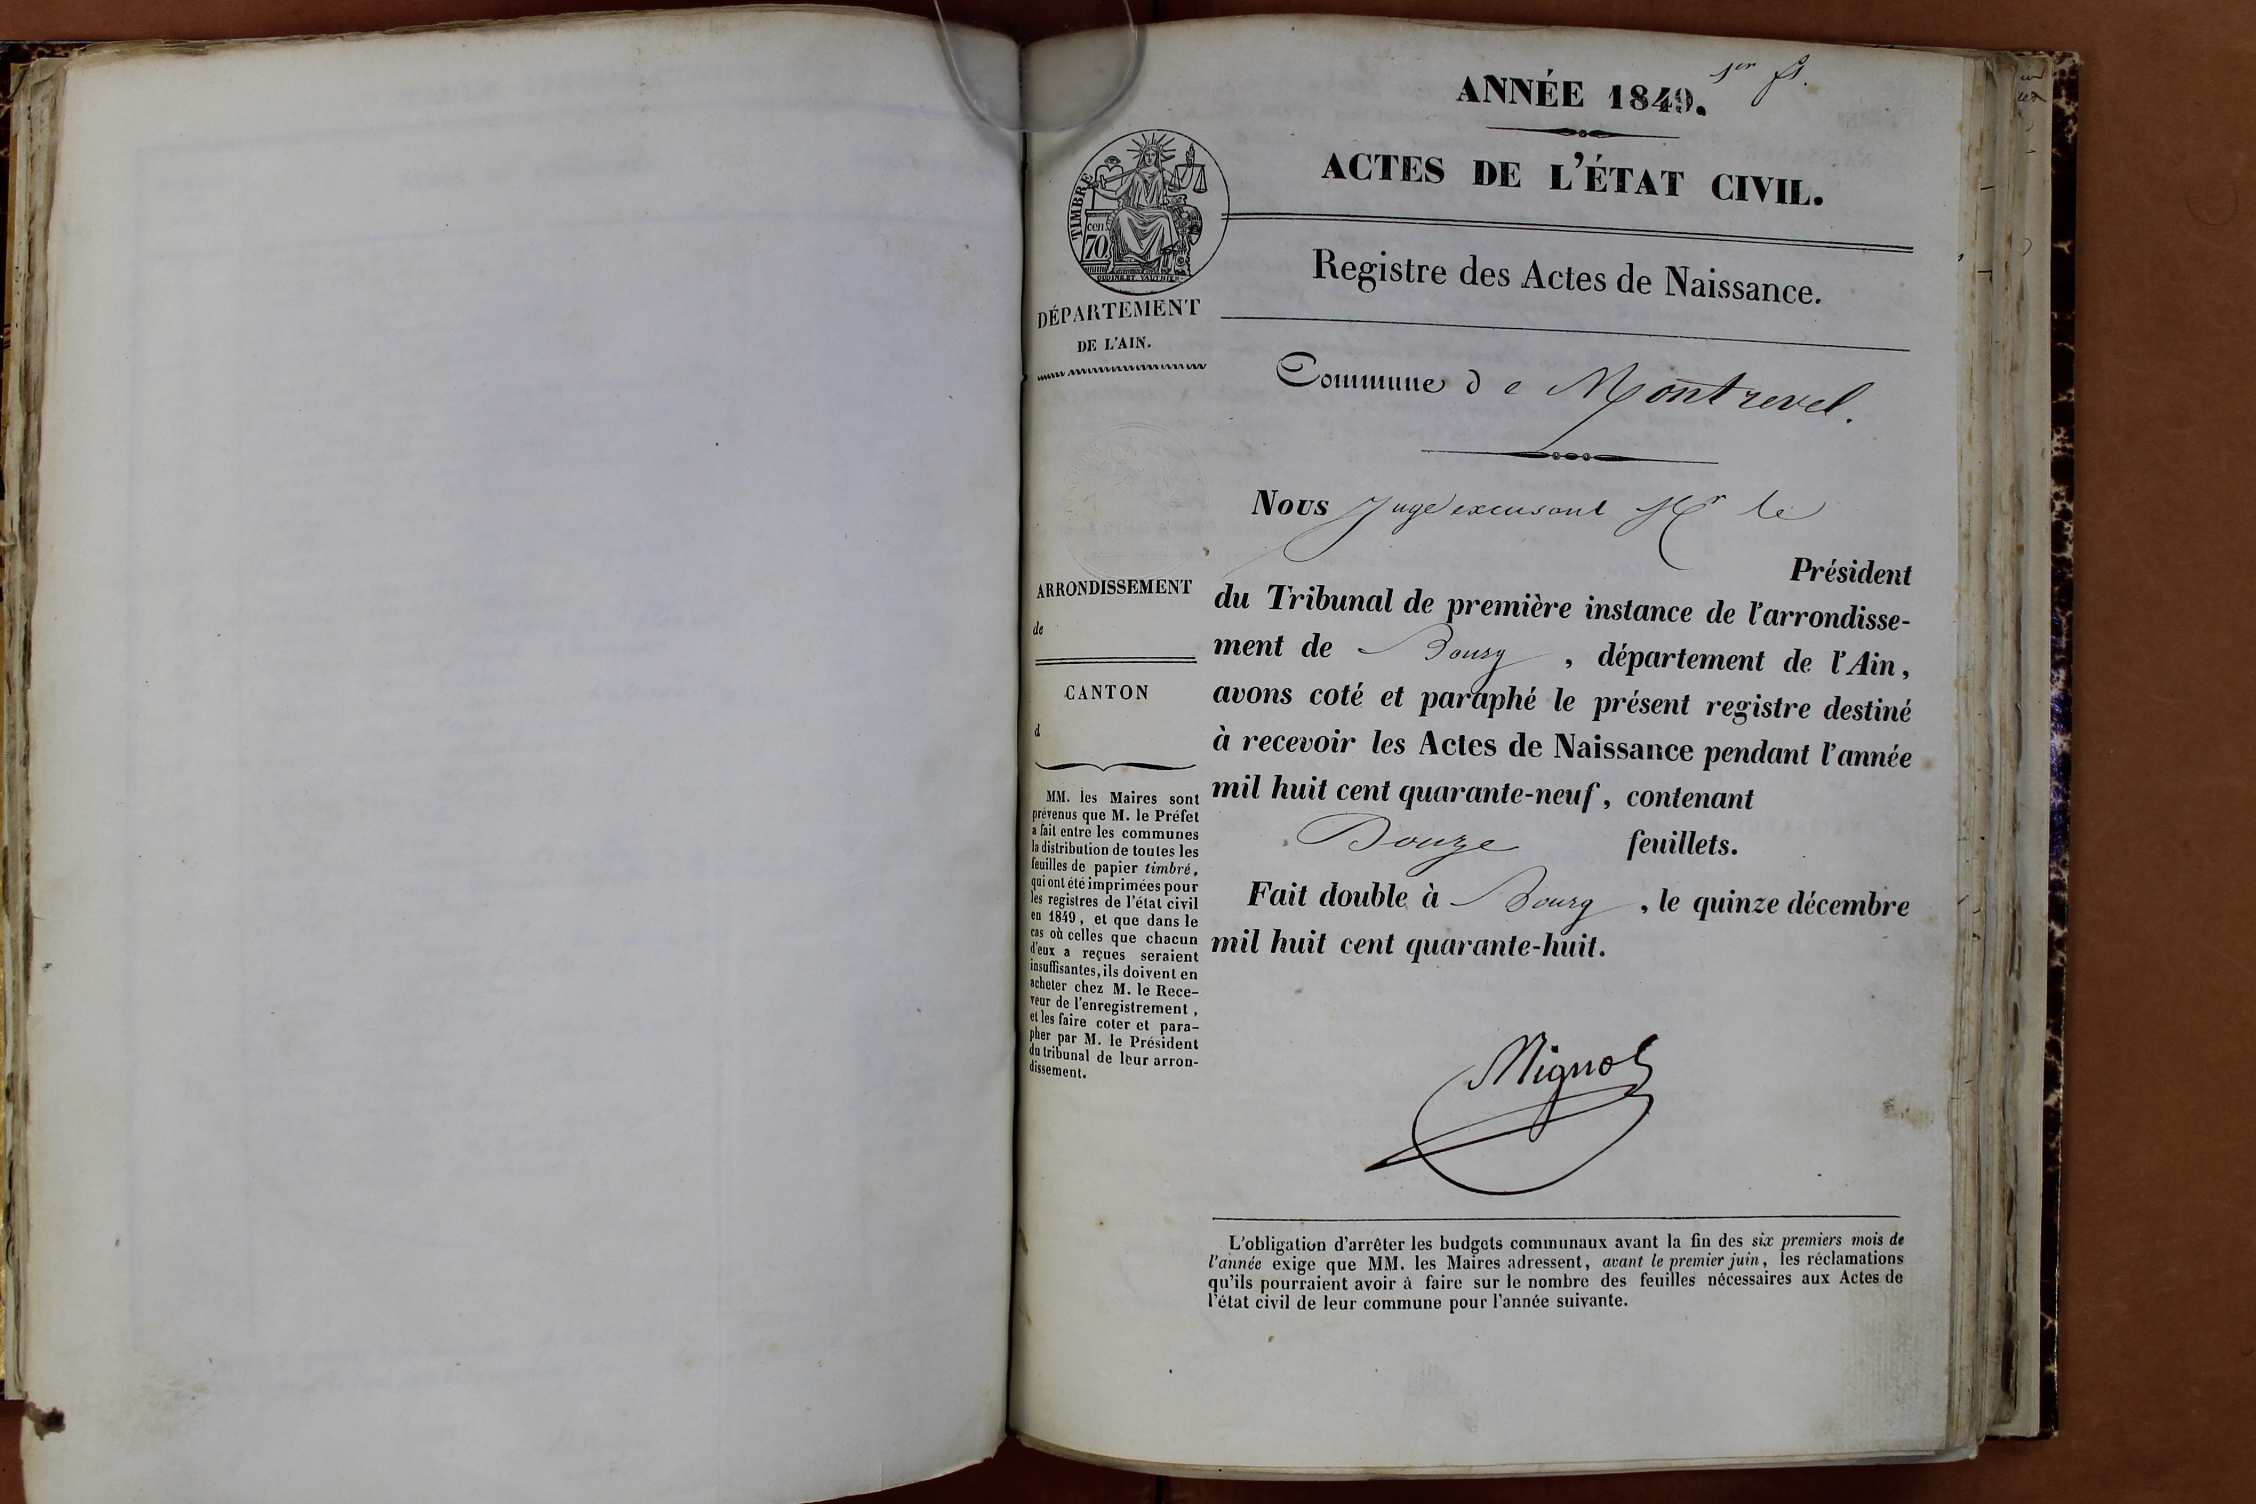 1er f.
ANNÉE 1849.
ACTES DE L'ÉTAT CIVIL.
TIMBRE
cen.
70
OUDINE ET VALTHIER
Registre des Actes de Naissance.
DÉPARTEMENT
DE L'AIN.
Commune de Montrevel.
Nous Juge excusant Mr le
Président
du Tribunal de première instance de l'arrondisse-
ment de Bourg, département de l'Ain,
avons coté et paraphé le présent registre destiné
à recevoir les Actes de Naissance pendant l'année
mil huit cent quarante-neuf, contenant
Douze feuillets.
Fait double à Bourg, le quinze décembre
mil huit cent quarante-huit.
Mignot
ARRONDISSEMENT
de
CANTON
d
MM. les Maires sont
prévenus que M. le Préfet
a fait entre les communes
la distribution de toutes les
feuilles de papier timbré,
qui ont été imprimées pour
les registres de l'état civil
en 1849, et que dans le
cas où celles que chacun
d'eux a reçues seraient
insuffisantes, ils doivent en
acheter chez M. le Rece-
veur de l'enregistrement,
et les faire coter et para-
pher par M. le Président
du tribunal de leur arron-
dissement.
L'obligation d'arrêter les budgets communaux avant la fin des six premiers mois de
l'année exige que MM. les Maires adressent, avant le premier juin, les réclamations
qu'ils pourraient avoir à faire sur le nombre des feuilles nécessaires aux Actes de
l'état civil de leur commune pour l'année suivante.